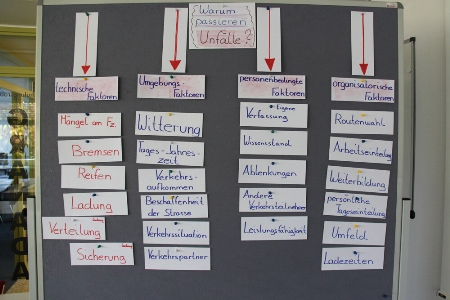 Warum
passieren
Unfälle?
technische
Faktoren
Mängel am Fz.
Bremsen
Reifen
Ladung
Verteilung
Sicherung
Umgebungs-
Faktoren
Witterung
Tages-Jahres-
zeit
Verkehrs-
aufkommen
Beschaffenheit
der Strasse
Verkehrssituation
Verkehrspartner
personenbedingte
Faktoren
Eigene
Verfassung
Wissensstand
Ablenkungen
Andere
Verkehrsteilnehmer
Leistungsfähigkeit
organisatorische
Faktoren
Routenwahl
Arbeitseinteilung
Weiterbildung
persönliche
Tageseinteilung
Umfeld
Ladezeiten